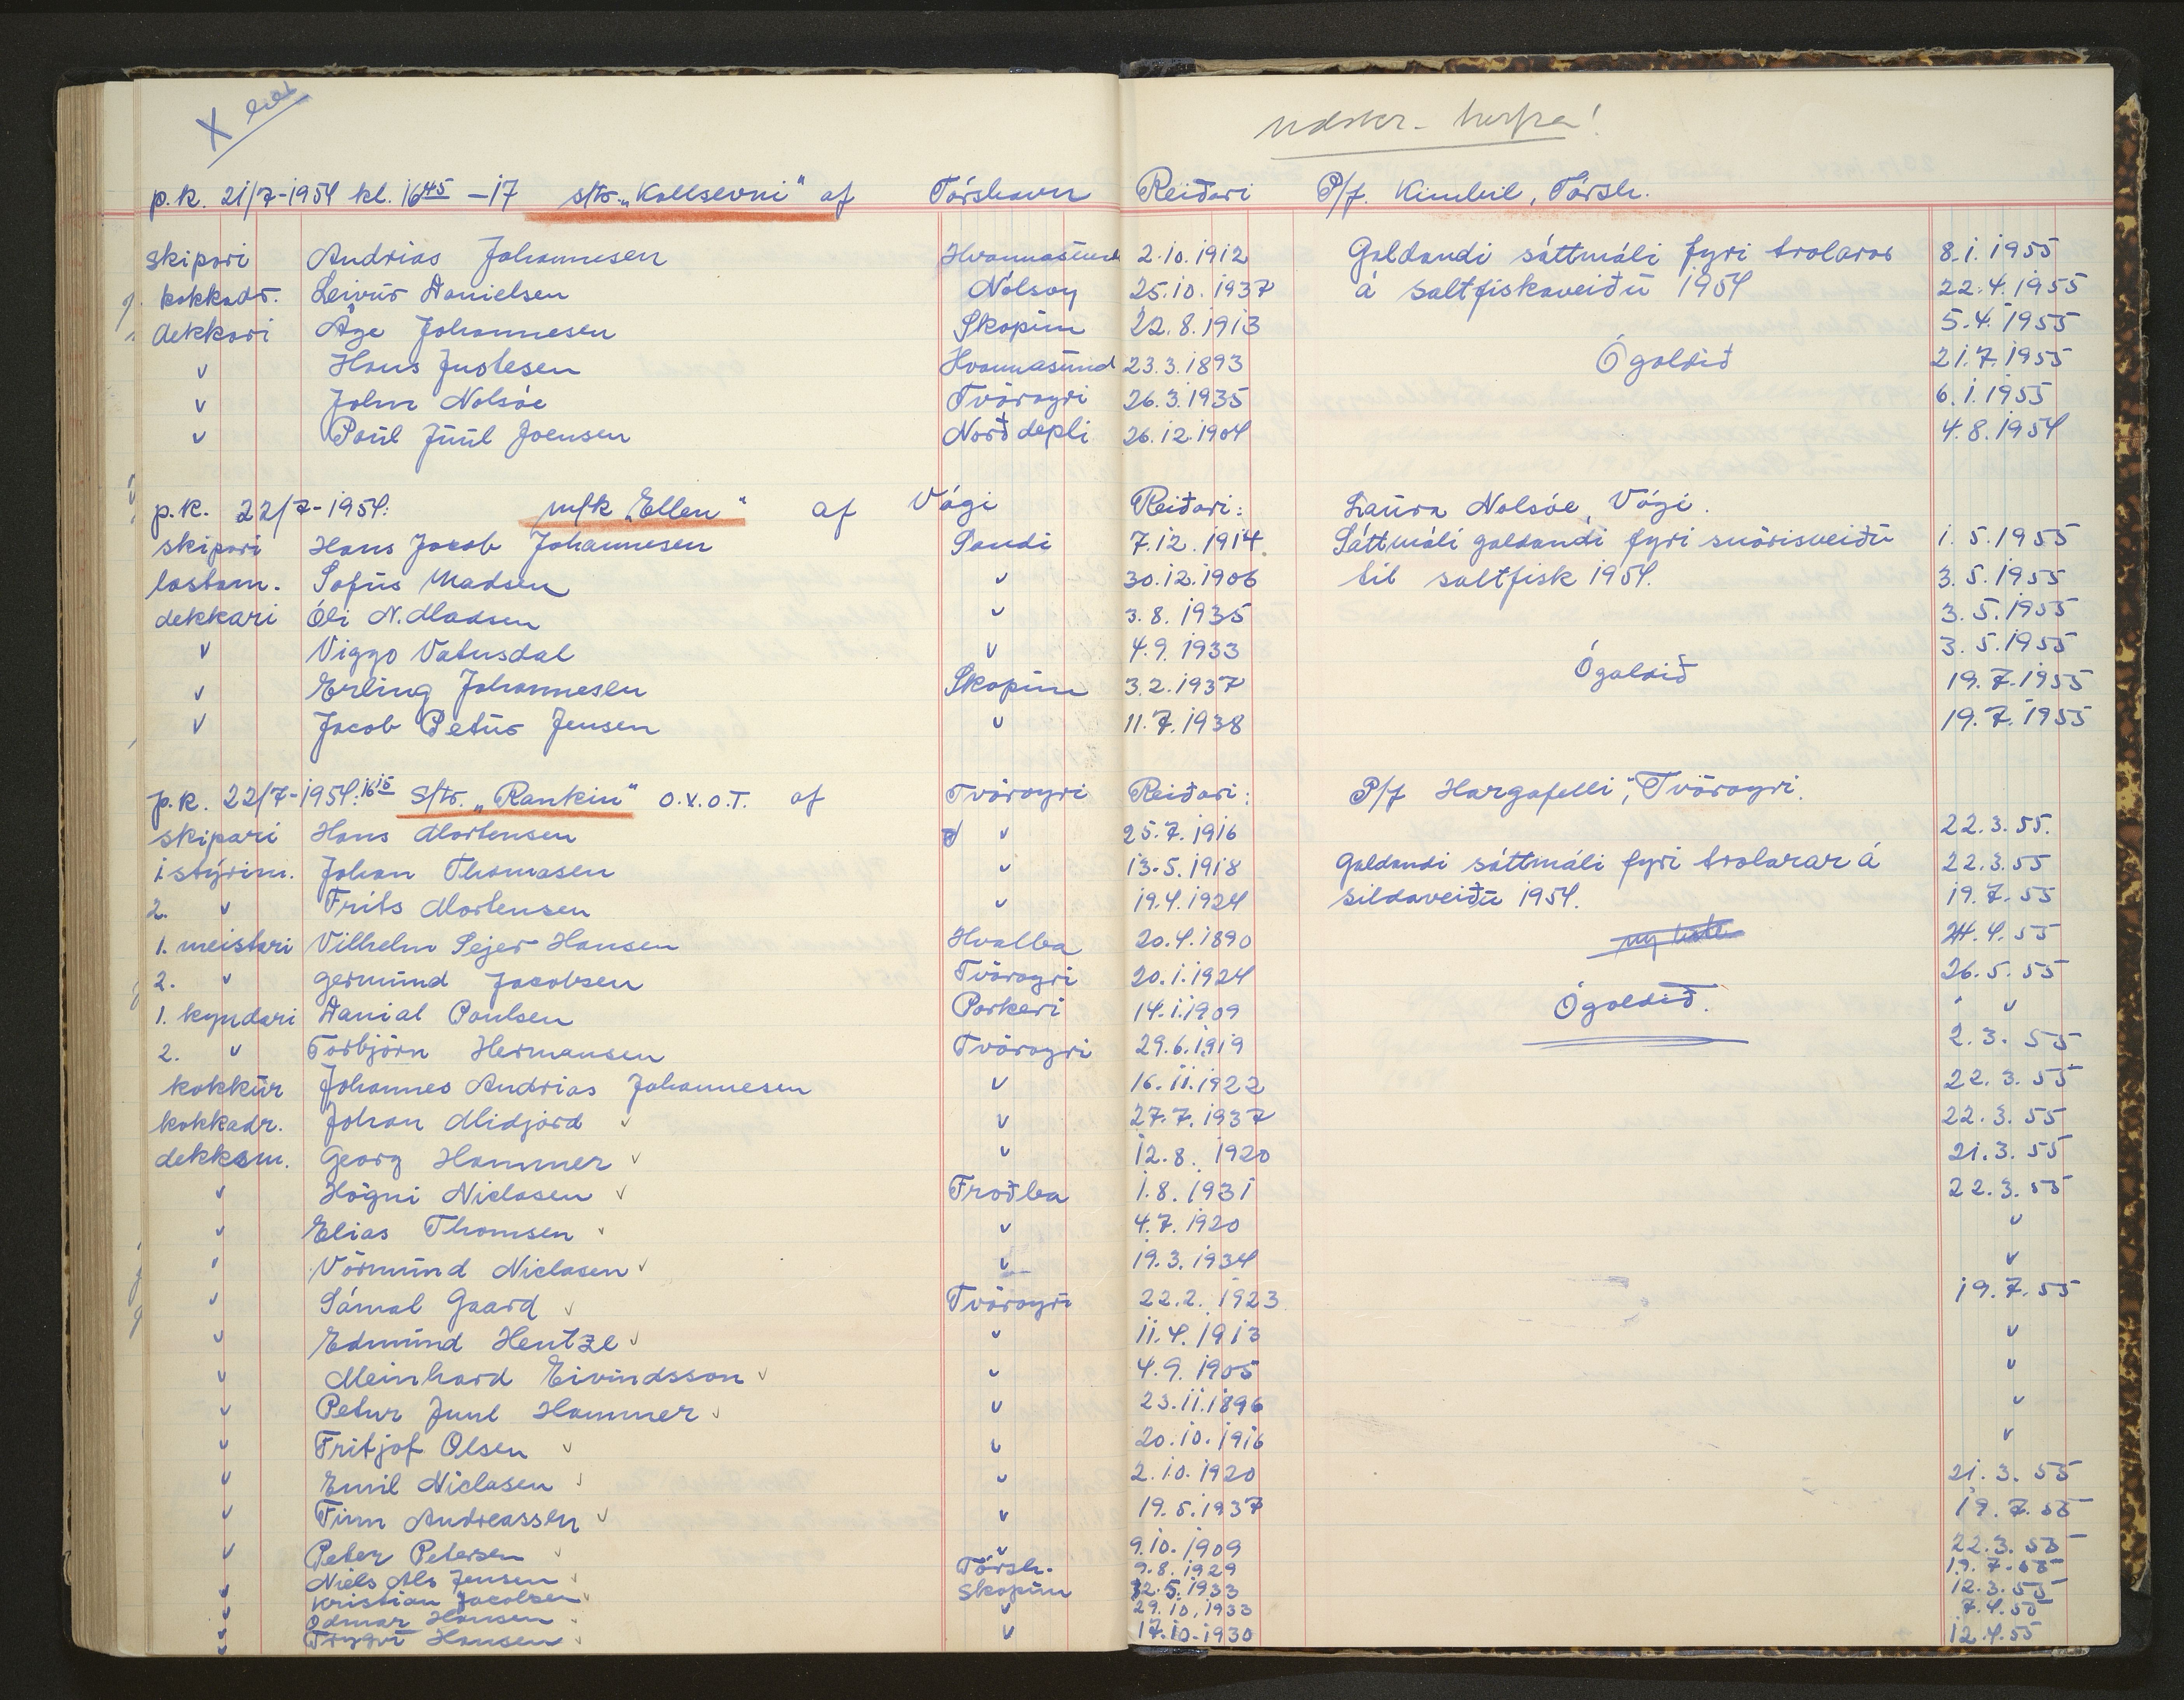 X
p.k. 21/7-1954 kl. 16⁴⁵ - 17 s/tr. „Kallsevni" af Tórshavn Reiðari P/f. Kimbil, Tórsh.
skipari Andrias Johannesen Hvannasund 2.10.1912 Galdandi sáttmáli fyri trolarar 8.1.1955
kokkadr. Leivur Danielsen Nólsoy 25.10.1937 á saltfiskaveiðu 1954 22.4.1955
dekkari Åge Johannesen Skopun 22.8.1913 5.4.1955
v Hans Justesen Hvannasund 23.3.1893 Ógoldið 21.7.1955
v John Nolsøe Tvöroyri 26.3.1935 6.1.1955
v Poul Juul Joensen Norðdepli 26.12.1904 4.8.1954
p.k. 22/7-1954: m/k „Ellen" af Vági Reiðari: Laura Nolsøe, Vági.
skipari Hans Jacob Johannesen Sandi 7.12.1914. Sáttmáli galdandi fyri snörisveiðu 1.5.1955
lastam. Sofus Madsen v 30.12.1906 til saltfisk 1954. 3.5.1955
dekkari Óli N. Madsen v 3.8.1935 3.5.1955
v Viggo Vatnsdal v 4.9.1933 3.5.1955
v Erling Johannesen Skopun 3.2.1937 Ógoldið 19.7.1955
v Jacob Petur Jensen v 11.7.1938 19.7.1955
p.k. 22/7-1954: 16¹⁵ S/tr. „Rankin" O.V.O.T. af Tvöroyri Reiðari: P/f Hargafelli", Tvöroyri.
skipari Hans Mortensen v 25.7.1916 22.3.55.
1 stýrim. Johan Thomasen v 13.5.1918 Galdandi sáttmáli fyri trolarar á 22.3.55
2. v Frits Mortensen v 19.4.1924 sildaveiðu 1954. 19.7.55
1. meistari Vilhelm Sejer Hansen Hvalba 20.4.1890 24.4.55
2. v Germund Jacobsen Tvöroyri 20.1.1924 26.5.55
1. kyndari Danial Poulsen Porkeri 14.1.1909 Ógoldið. " v
2. v Torbjörn Hermansen Tvöroyri 29.6.1919 2.3.55
kokkur Johannes Andrias Johannesen v 16.11.1922 22.3.55
kokkadr. Johan Midjord v v 27.7.1937 22.3.55
dekksm. Georg Hammer v v 12.8.1920 21.3.55
v Högni Niclasen v Froðba 1.8.1931 22.3.55
v Elias Thomsen v v 4.7.1920 v
v Vörmund Niclasen v v 19.3.1934 v
v Sámal Gaard v Tvöroyri 22.2.1923 19.7.55
v Edmund Hentze v v 11.4.1913 v
v Meinhard Eivindsson v v 4.9.1905 v
v Petur Juul Hammer v v 23.11.1896 v
v Fritjof Olsen v v 20.10.1916 v
v Emil Niclasen v v 2.10.1920 21.3.55
v Finn Andreassen v v 19.5.1937 19.7.55
v Peter Petersen v v 9.10.1909 22.3.55
Niels Als Jensen v Tórsh. 9.8.1929 19.7.55
v Kristian Jacobsen v Skopun 12.5.1933 12.3.55
v Odmar Hansen v v 29.10.1933 7.4.55
v Trygvi Hansen v v 17.10.1930 12.4.55